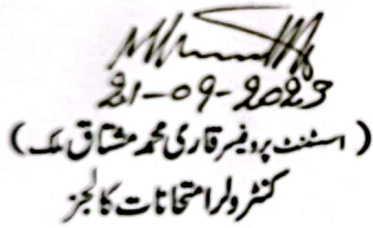 21-09-2023
(اسسٹنٹ پروفیسر قاری محمد مشتاق ملک)
کنٹرولر امتحانات کالجز